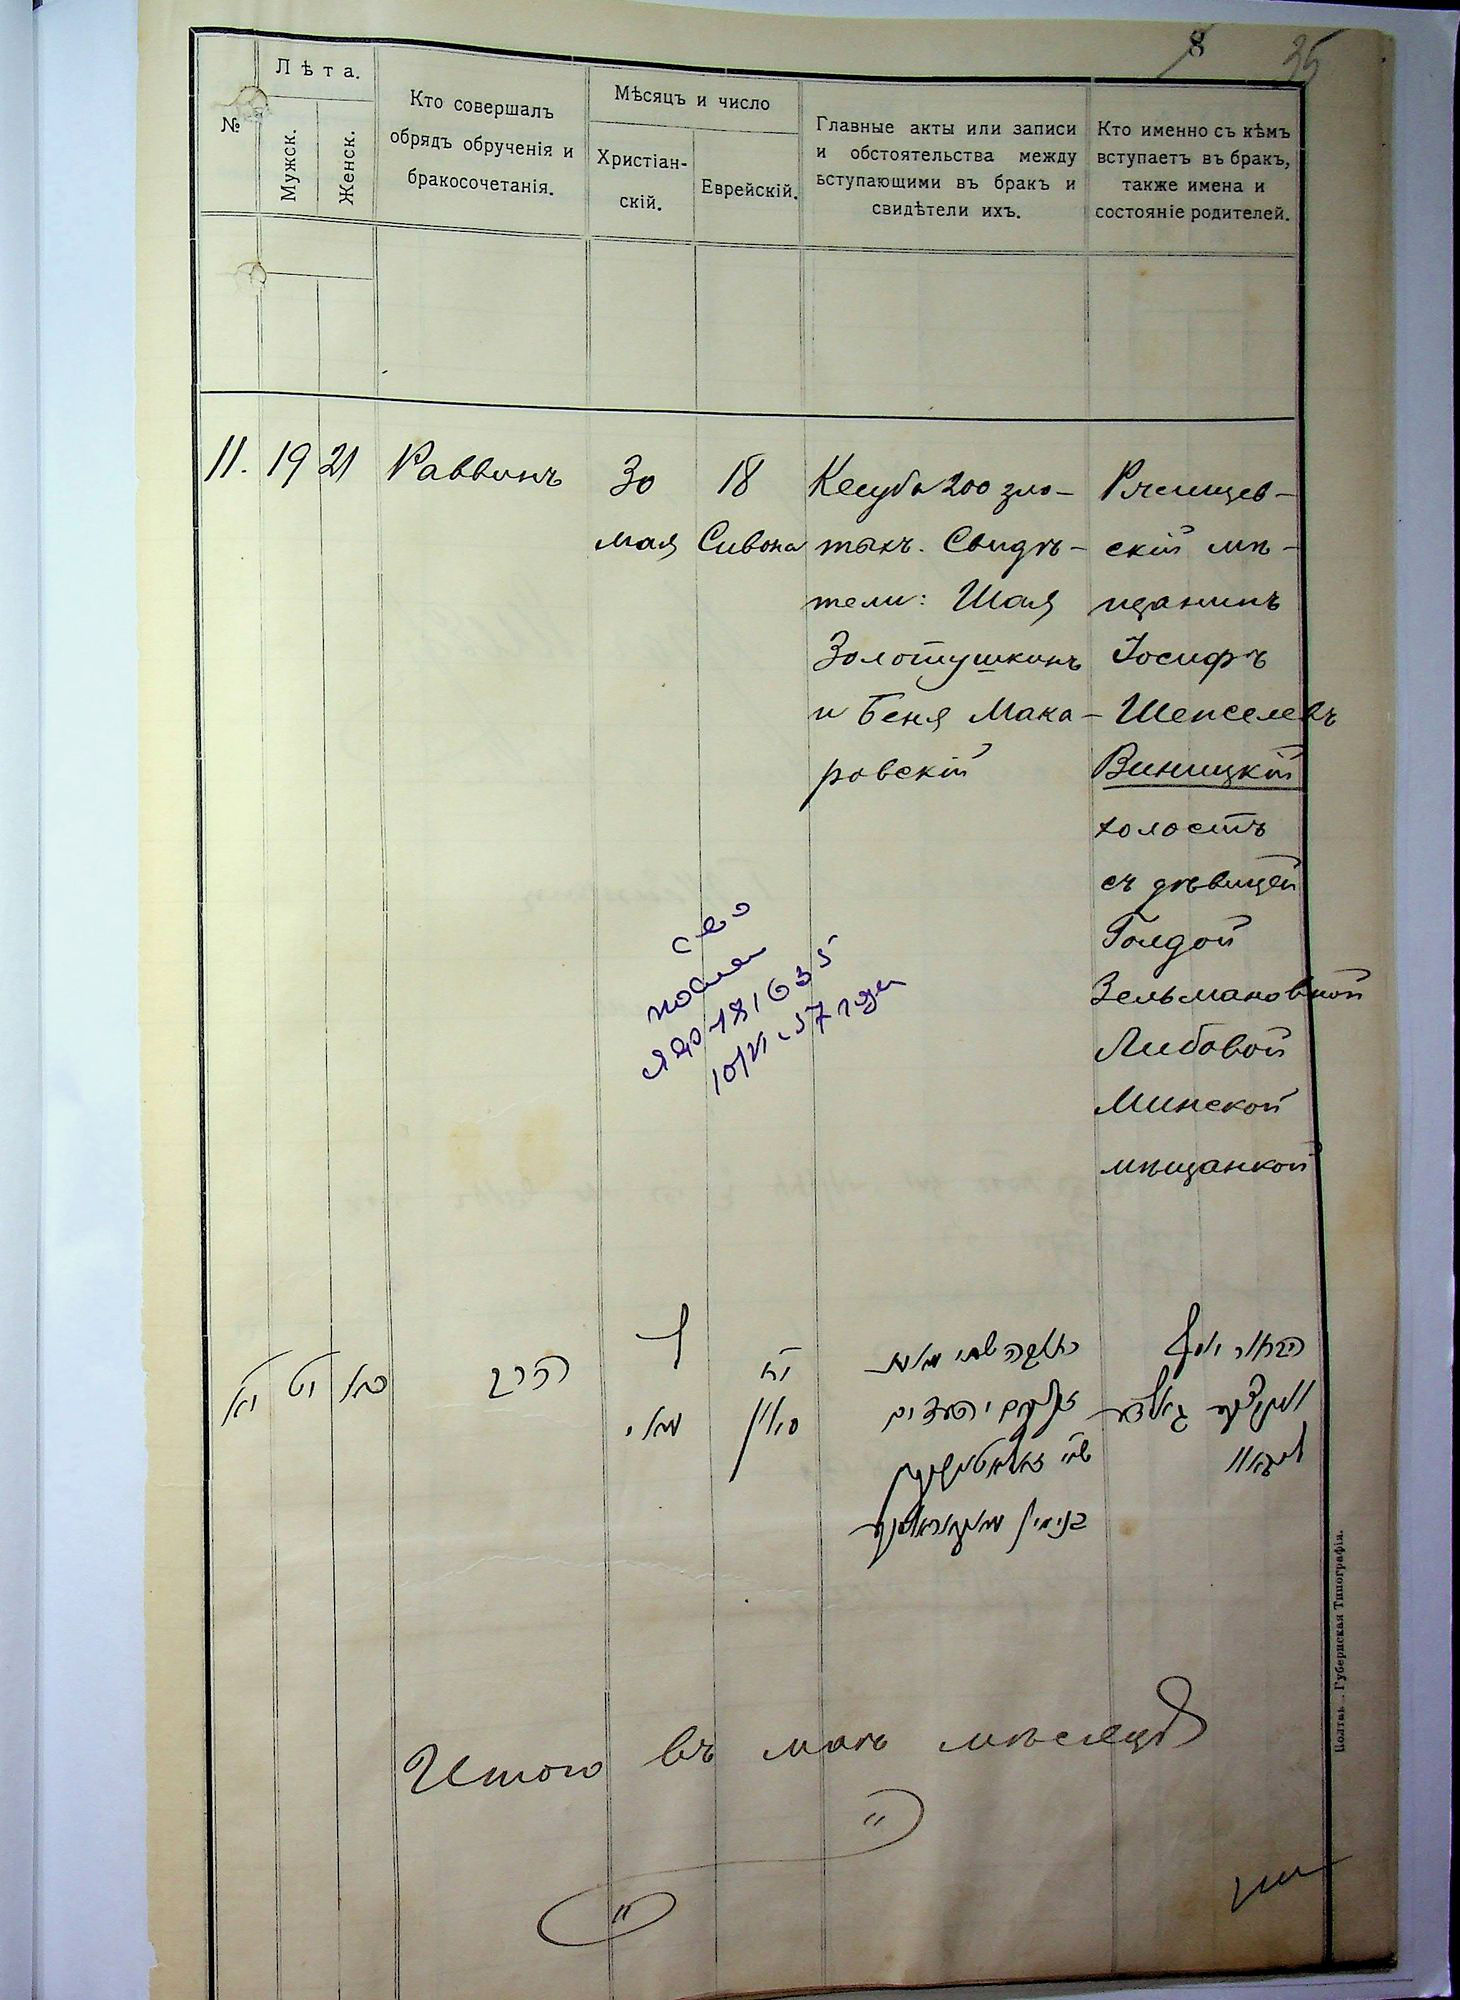 8 35
№
Лѣта.
Мужск.
Женск.
Кто совершалъ
обрядъ обрученія и
бракосочетанія.
Мѣсяцъ и число
Христіан-
скій.
Еврейскій.
Главные акты или записи
и обстоятельства между
вступающими въ бракъ и
свидѣтели ихъ.
Кто именно съ кѣмъ
вступаетъ въ бракъ,
также имена и
состояніе родителей.
11.
19
21
Раввинъ
30
мая
18
Сивона
Кесуба 200 зло-
тыхъ. Свидѣ-
тели: Шая
Золотушкинъ
и Беня Мака-
ровскій
скій мѣ-
щанинъ
Іосифъ
Шепселевъ
Виницкій
холостъ
съ дѣвицей
Голдой
Зельмановной
Либовой
Минской
мѣщанкой
יא
יט
כא
הרב
ל
מאי
יח
סיון
שתי מאות
בנימין
Итого въ маѣ мѣсяцѣ
"
"
Полтав. Губернская Типографія.